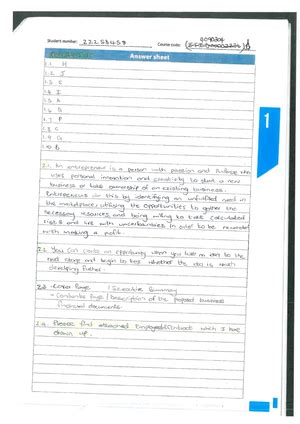 Student number: 22253453 Course code:
Answer sheet
1.1 H
1.2 J
1.3 E
1.4 I
1.5 A
1.6 S
1.7 P
1.8 C
1.9 G
1.10 B
1
2.1 An entrepreneur is a person with passion and purpose who
uses personal innovation and creativity to start a new
business or take ownership of an existing business.
Entrepreneurs do this by identifying an unfulfilled need in
the marketplace, utilising the opportunities to gather the
necessary resources and being willing to take calculated
risks and live with uncertainties in order to be rewarded
with making a profit.
2.2 You can create an opportunity when you take an idea to the
next stage and begin to test whether the idea is worth
developing further.
2.3 - Cover Page - Executive Summary
- Contents Page - Description of the proposed business
- financial documents
2.4 Please find attached Employment Contract which I have
drawn up.